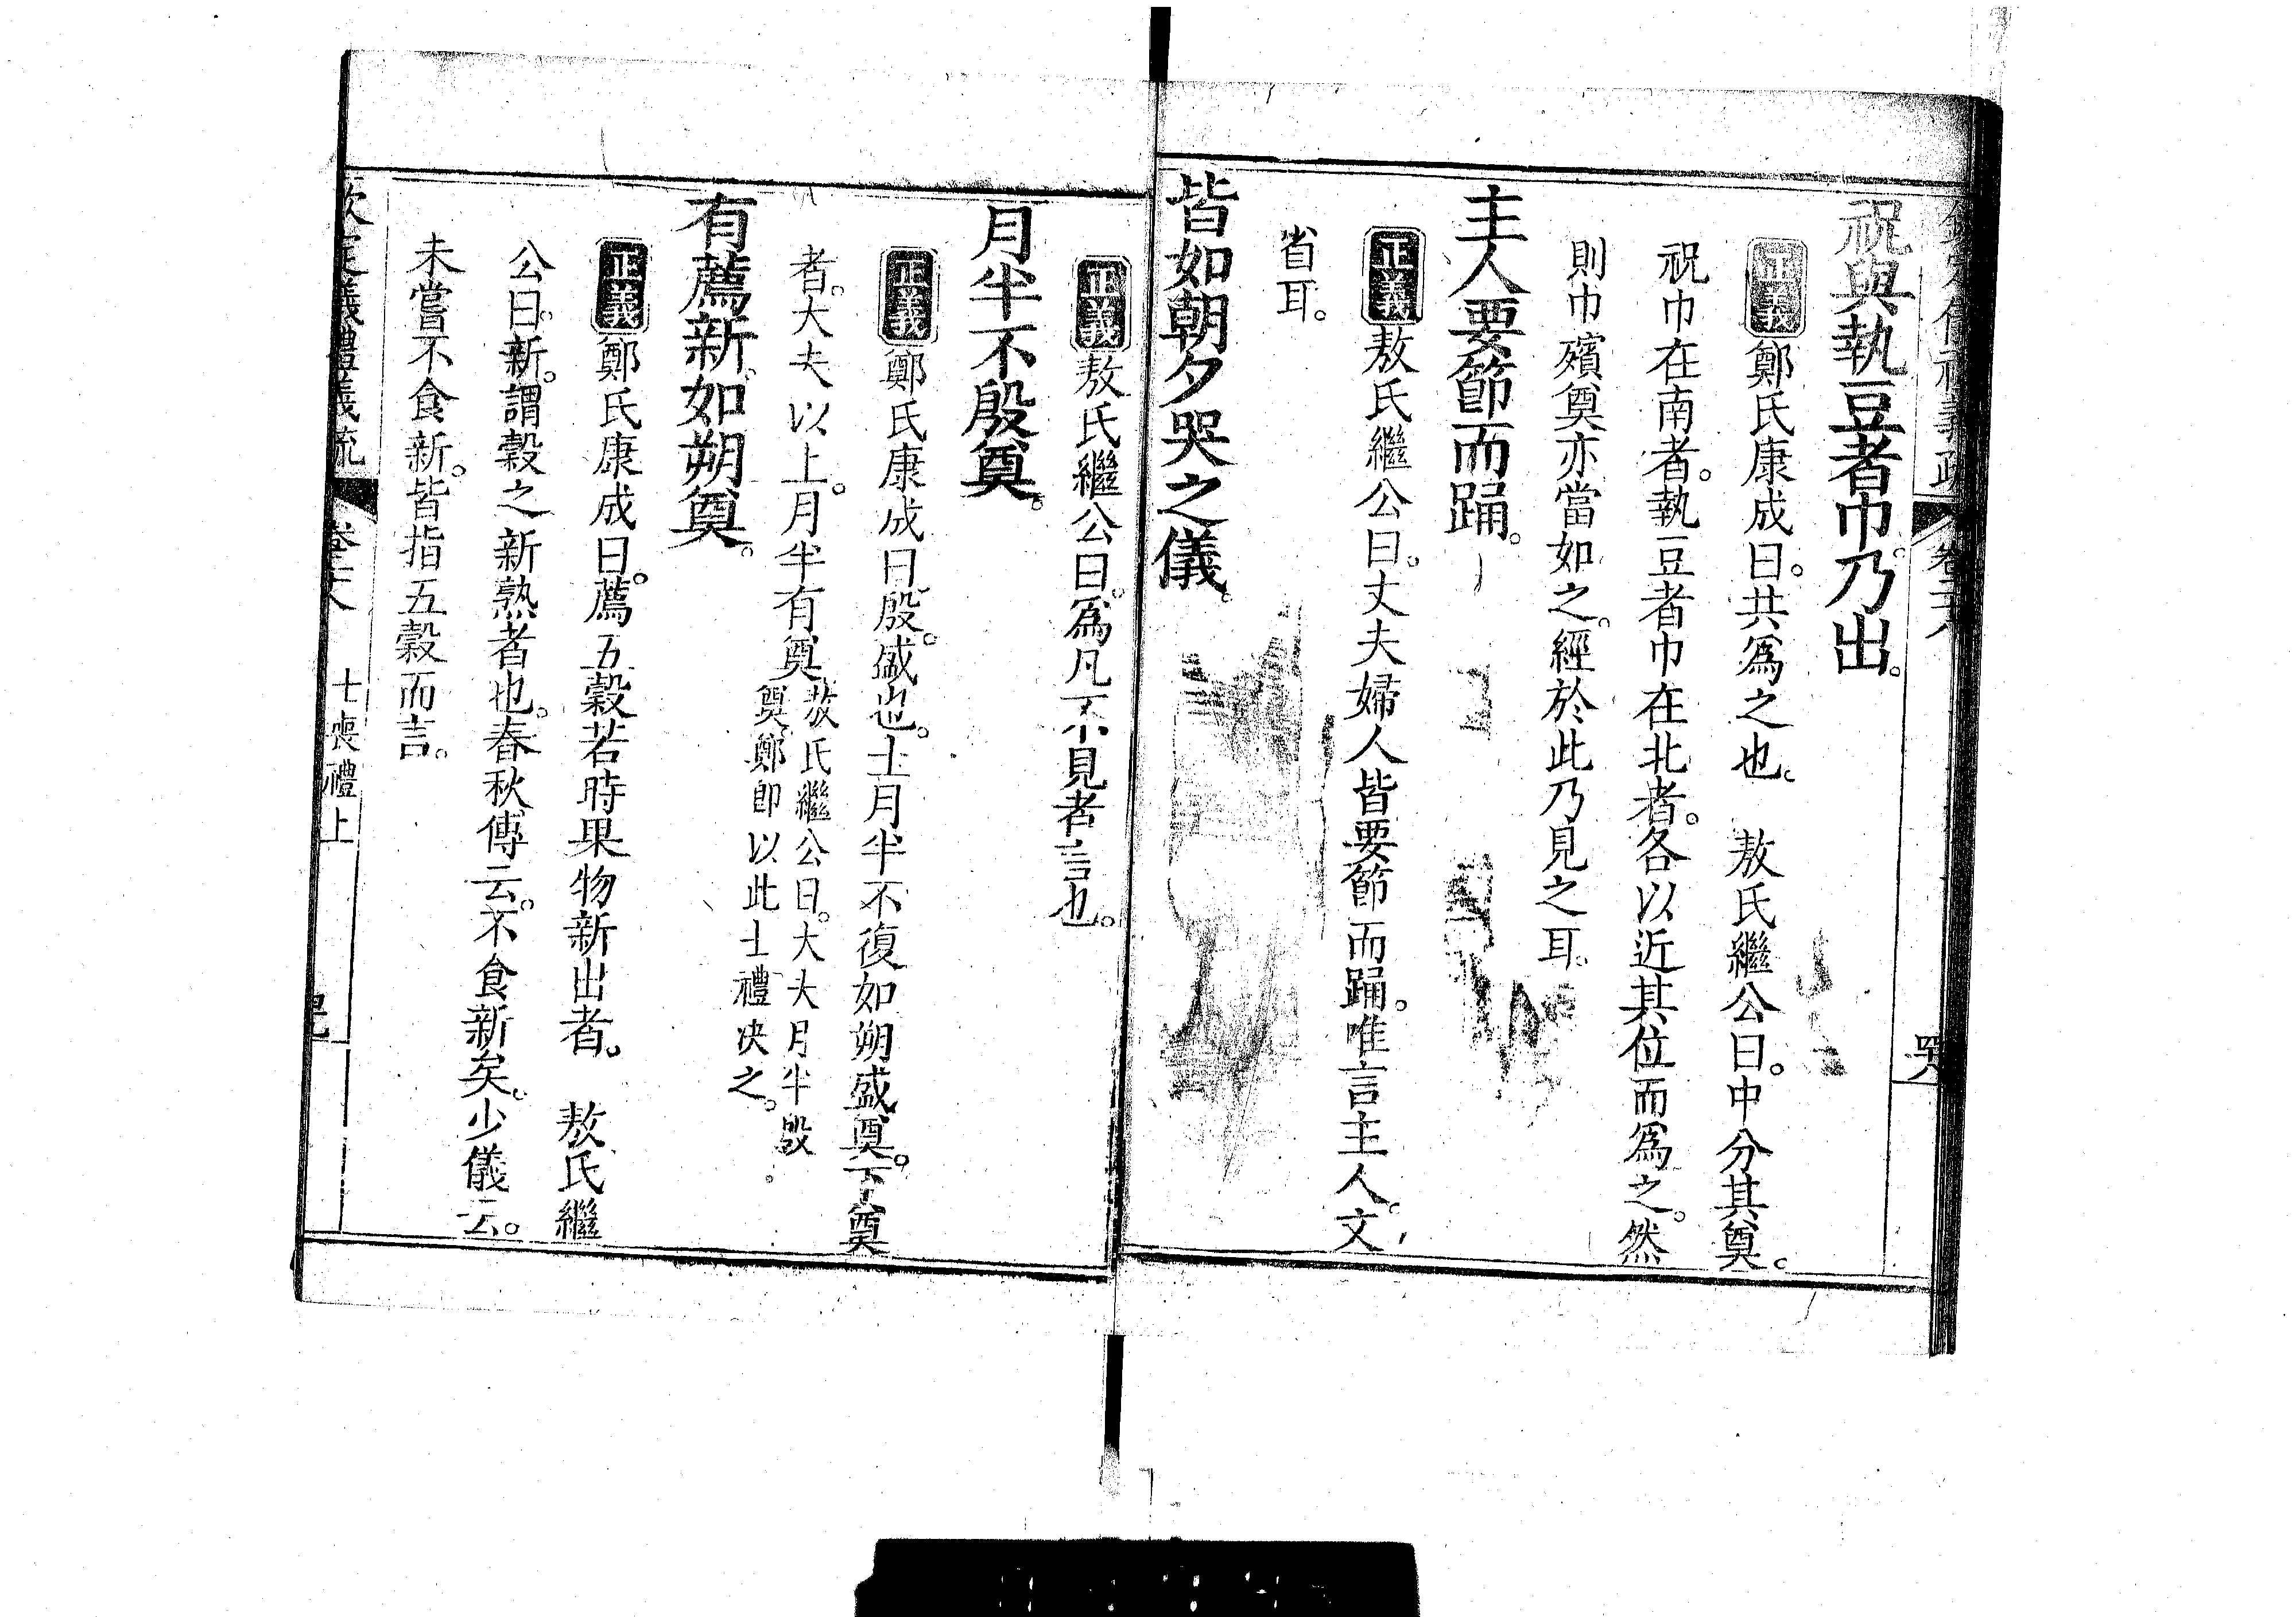 欽定儀禮義疏 卷二十八 哭
祝與執豆者巾乃出。
正義鄭氏康成曰。共爲之也。 敖氏繼公曰。中分其奠。
祝巾在南者。執豆者巾在北者。各以近其位而爲之。然
則巾殯奠亦當如之。經於此乃見之耳。
主人要節而踊。
正義敖氏繼公曰。丈夫婦人皆要節而踊。唯言主人。文
省耳。
皆如朝夕哭之儀。
正義敖氏繼公曰。爲凡不見者言也。
月半不殷奠。
正義鄭氏康成曰。殷。盛也。士月半不復如朔盛奠。下尊
者。大夫以上。月半有奠敖氏繼公曰。大夫月半殷
奠。鄭卽以此士禮决之。
有薦新。如朔奠。
正義鄭氏康成曰。薦五穀若時果物新出者。 敖氏繼
公曰。新。謂穀之新熟者也。春秋傳云。不食新矣。少儀云。
未嘗不食新。皆指五穀而言。
欽定儀禮義疏 卷二十八 士喪禮上